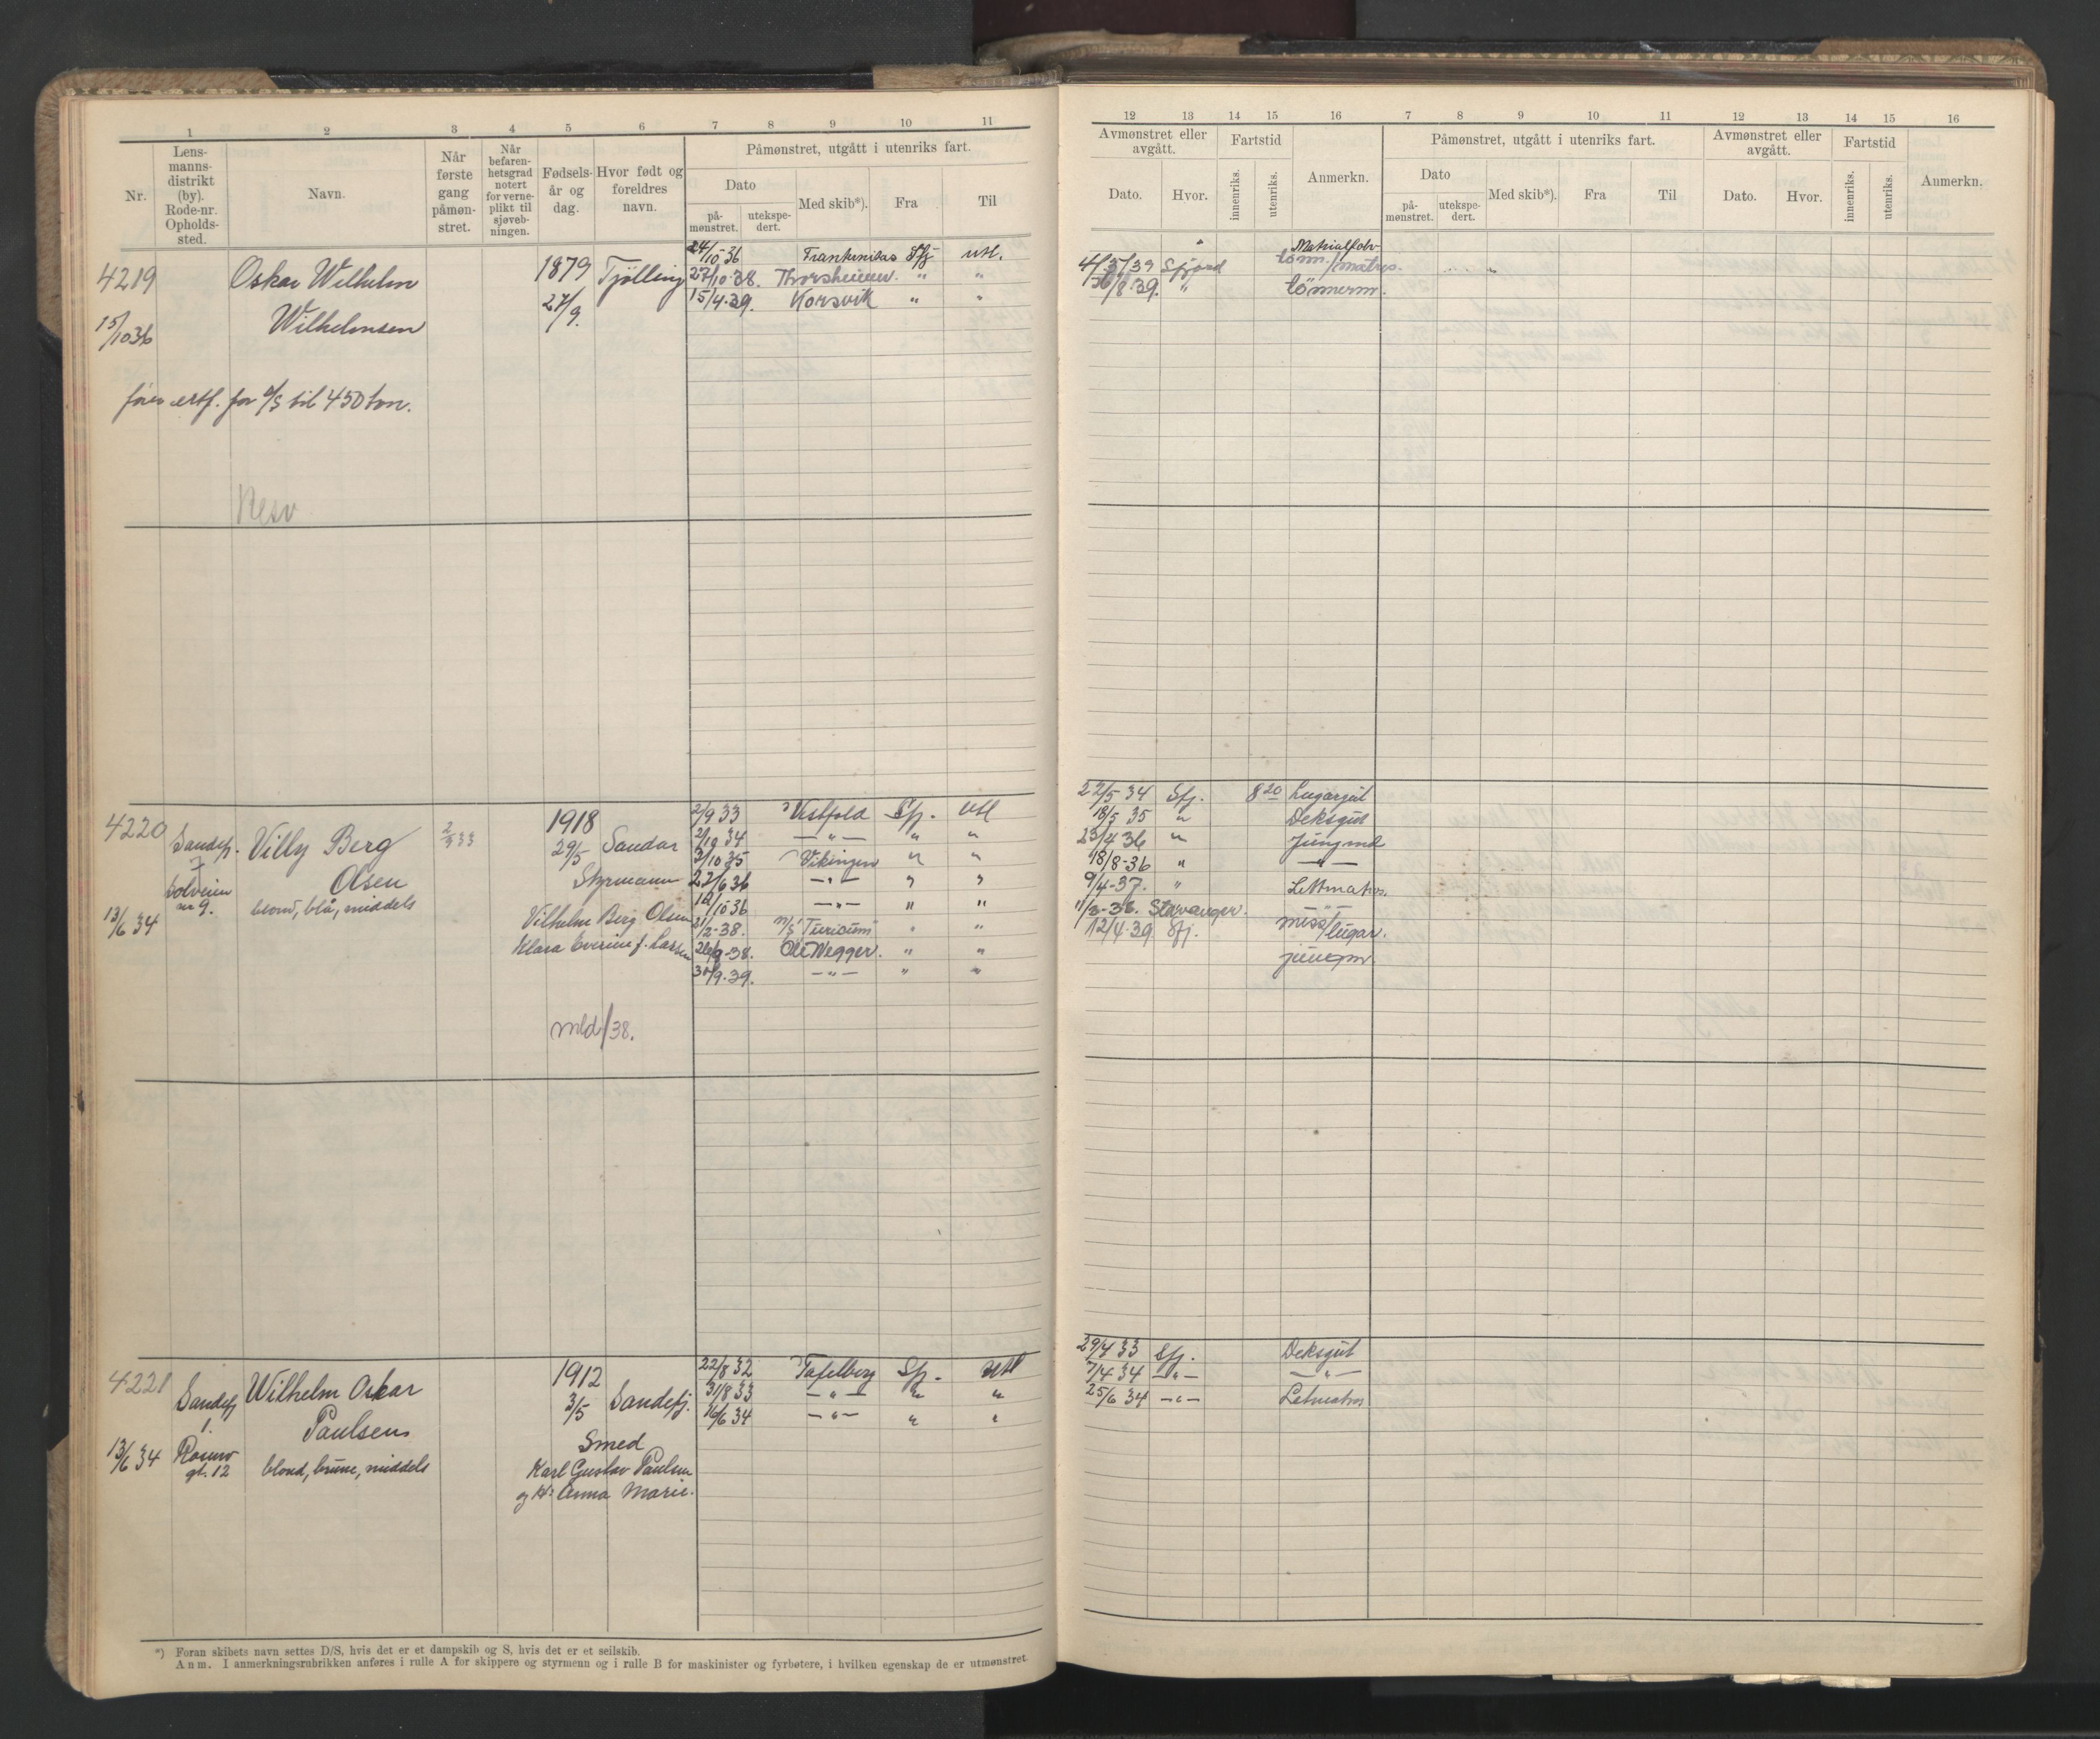 1 2 3 4 5 6 7 8 9 10 11
Nr.
Lens-
manns-
distrikt
(by).
Rode-nr.
Opholds-
sted.
Navn.
Når
første
gang
påmøn-
stret.
Når
befaren-
hetsgrad
notert
for verne-
plikt til
sjøveb-
ningen.
Fødsels-
år og
dag.
Hvor født og
foreldres
navn.
Påmønstret, utgått i utenriks fart.
Dato
på-
mønstret.
utekspe-
dert.
Med skib*).
Fra
Til
4219 Oskar Wilhelm 1879 Tjølling
15/10 36 Wilhelmsen 27/9.
24/10-36 Sfj utl.
27/10-38. Thorshammer. " "
15/4-39. Korsvik " "
til 450 ton.
Resv
4220 Sandefj. Villy Berg 2/9 33 1918
7 Olsen 29/5 Sandar
Solveien Styrmann
nr 9. blond, blå, middels
13/6 34 Vilhelm Berg Olsen
Klara f. Larsen
mld/38.
2/9 33 Vestfold Sfj. Utl
2/10 34 —"— " "
3/10 35 Vikingen " "
22/6 36 —"— " "
12/10 36 —"— " "
21/2-38. M/S Turicum " "
26/9-38. Ole Wegger. " "
30/9-39. —"— " "
4221 Sandefj Wilhelm Oskar 1912
1. Paulsen 3/5 Sandefj.
13/6 34 gt. 12 blond, brune, middels Smed
Karl Gustav Paulsen
og H: Anna Marie.
22/8 32 Tafelberg Sfj. Utl
31/8 33 —"— " "
16/6 34 —"— " "
*) Foran skibets navn settes D/S, hvis det er et dampskib og S, hvis det er et seilskib.
Anm. I anmerkningsrubrikken anføres i rulle A for skippere og styrmenn og i rulle B for maskinister og fyrbøtere, i hvilken egenskap de er utmønstret
12 13 14 15 16 7 8 9 10 11 12 13 14 15 16
Avmønstret eller
avgått.
Dato.
Hvor.
Fartstid
innenriks.
utenriks.
Anmerkn.
Påmønstret, utgått i utenriks fart.
Dato
på-
mønstret.
utekspe-
dert.
Med skib*).
Fra
Til
Avmønstret eller
avgått.
Dato.
Hvor.
Fartstid
innenriks.
utenriks.
Anmerkn.
tønn./matros.
/8-39. " tønnerm.
22/5 34 Sfj. 8 20 Lugargut
18/5 35 " Deksgut
23/4 36 " Jungmd
18/8-36 " —"—
9/4-37. " Lettmatros.
Stavanger. —"—
12/4-39 Sfj. mess/lugar.
jungm.
29/4 33 Sfj. Deksgut
7/4 34 —"— —"—
25/6 34 —"— Letmatros